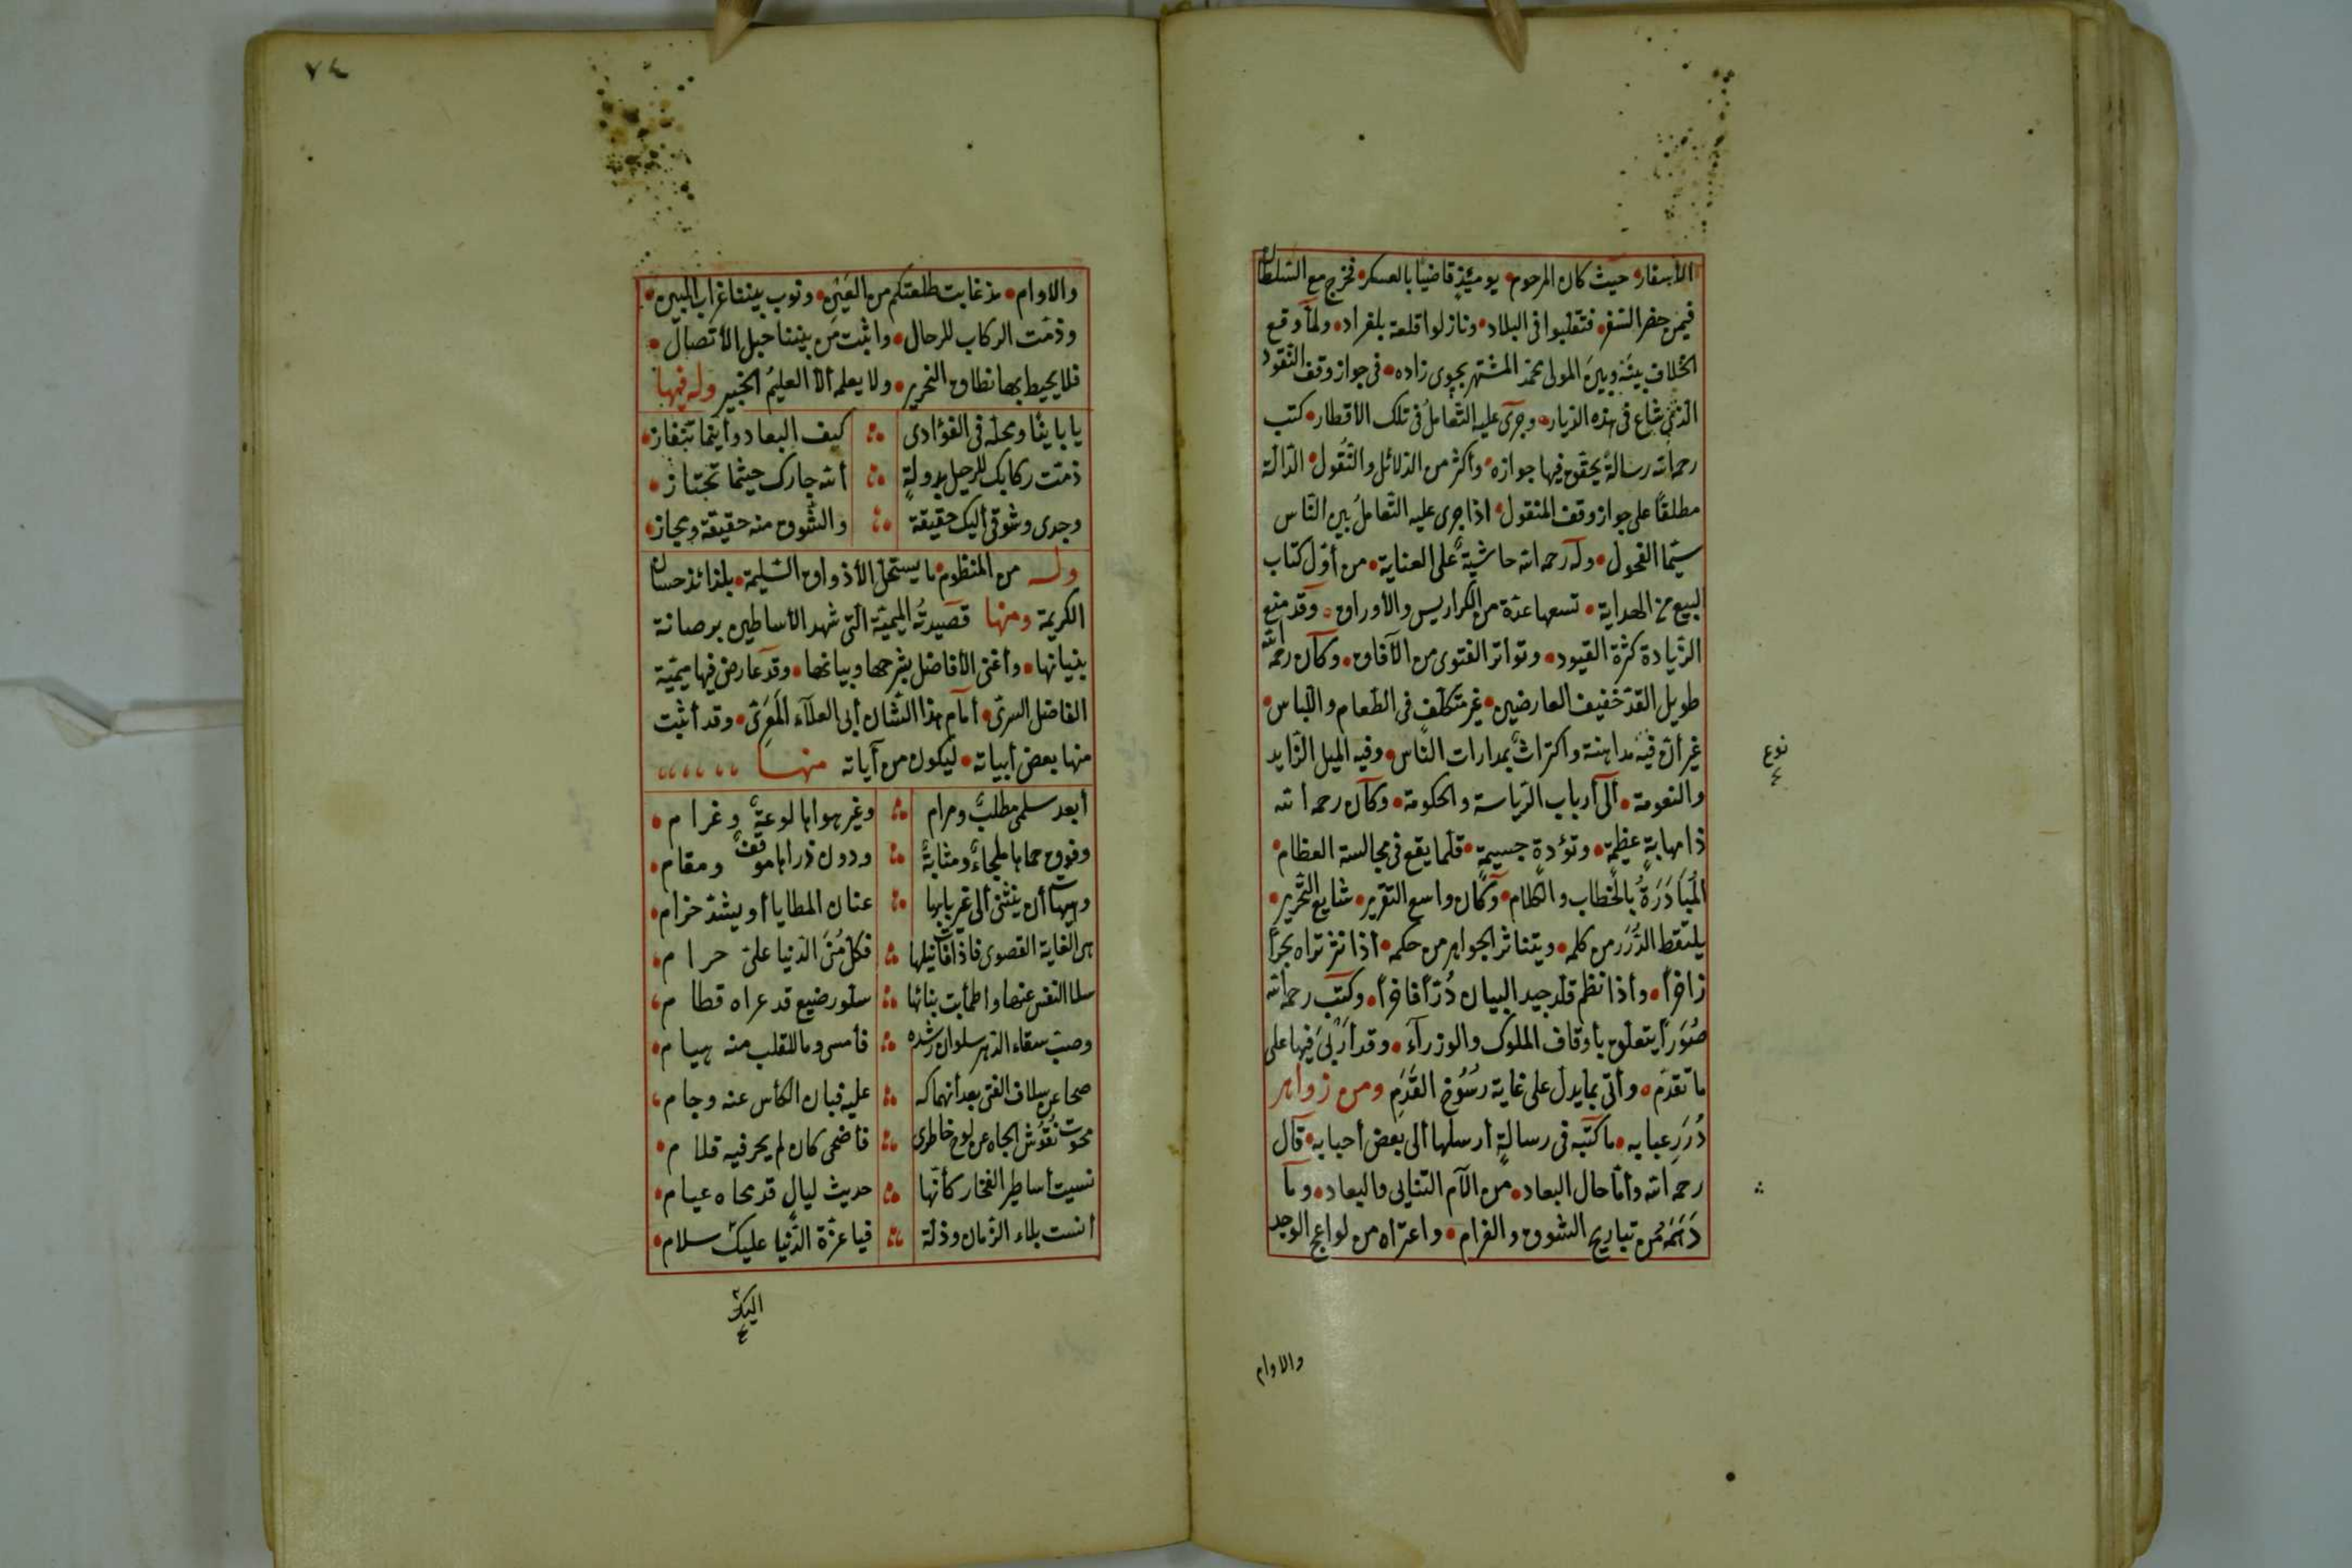 الأسفار حيث كان المرحوم يومئذٍ قاضيا بالعسكر فخرج مع السلطان
فيمن حضر السفر فتقلبوا فى البلاد ونازلوا قلعة بلغراد ولما وقع
الخلاف بينه وبين المولى محمد المشتهر بجوى زاده فى جواز وقف النقود
الذى شاع فى هذه الديار وجرى عليه التعامل فى تلك الأقطار كتب
رحمه الله رسالة يحقق فيها جوازه وأكثر من الدلائل والنقول الدالة
مطلقًا على جواز وقف المنقول اذا جرى عليه التعامل بين الناس
سيما الفحول وله رحمه الله حاشية على العناية من أول كتاب
البيع من الهداية تسعها عدة من الكراريس والأوراق وقد منع
الزيادة كثرة القيود وتواتر الفتوى من الآفاق وكان رحمه الله
طويل القد خفيف العارضين غير متكلف فى الطعام واللباس
غير أن فيه مداهنة واكتراث بمدارات الناس وفيه الميل الزايد
نوع
والنعومة ألى أرباب الرياسة والحكومة وكان رحمه الله
ذا مهابةٍ عظيمةٍ وتؤدةٍ جسيمةٍ قلما يقع فى مجالسة العظام
المُبَادَرَةُ بالخطاب والكلام وكان واسع التقرير شايع التحرير
يلتقط الدُّرَر من كلمه ويتناثر الجواهر من حكمه أذا نثر تراه بحرًا
زاخرًا وأذا نظم قلد جيد البيان دُرّا فاخرًا وكتب رحمه الله
صُوَرًا يتعلق بأوقاف الملوك والوزرآء وقد أَرْبَى فيها على
ما تقدم وأتى بما يدل على غاية رسُوخ القَدَمِ ومن زواهر
دُرَرِ عبابه ما كتبه فى رسالةٍ أرسلها ألى بعض أحبابه قال
رحمه الله وأما حال البعاد من الآم التنايى والبعاد وما
دَهَمَهُ من تباريح الشوق والغرام واعتراه من لواعج الوجد
والاوام
٧٤
والاوام مذ غابت طلعتكم من العين ونوب بيننا غراب البين
وذمّت الركاب للرحال وانبتّ من بيننا حبل الأتصال
فلا يحيط بها نطاق التحرير ولا يعلمه ألا العليمُ الخبير وله فيها
يا باينًا ومحله فى الفؤادى كيف البعاد وأينما تنفاز
ذمّت ركابك للرحيل بدولةٍ ألله جارك حيثما تجتاز
وجدى وشوقى أليك حقيقة والشوق منه حقيقة ومجاز
وله من المنظوم ما يستحل الأذواق السليمة بلذائذ حسان
الكريمة ومنها قصيدتُه الميمية التى شهد الأساطين برصانة
بنيانها وأغنى الأفاضل بشرحها وبيانها وقد عارض فيها ميمية
الفاضل السرى أمام هذا الشان أبى العلآء المَعَرى وقد أثبت
منها بعض أبياته ليكون من آياته منها
أبعد سلمى مطلبٌ ومرام وغير هواها لوعةٌ وغرام
وفوق حماها ملجاءٌ ومثابةٌ ودون ذراها موقفٌ ومقام
وهيهات أن ينثنى ألى غير بابها عنان المطايا أو يشد حزام
هى الغاية القصوى فاذا فات نيلها فكل مُنَى الدنيا على حرام
سلا النفس عنها واطمأنت بنائها سلو رضيع قد عراه فطام
وصب سقاء الدهر سلوان رشده فأمسى وما للقلب منه هيام
صحا عن سلاف الغى بعد أنهماكه عليه فبان الكأس عنه وجام
محوت نقُوش الجاه عن لوح خاطرى فأضحى كان لم يجر فيه قلام
نسيت أساطير الفخار كأنها حديث ليالٍ قد محاه عيام
أنست بلاء الزمان وذلة فيا عزة الدنيا عليك سلام
اليك